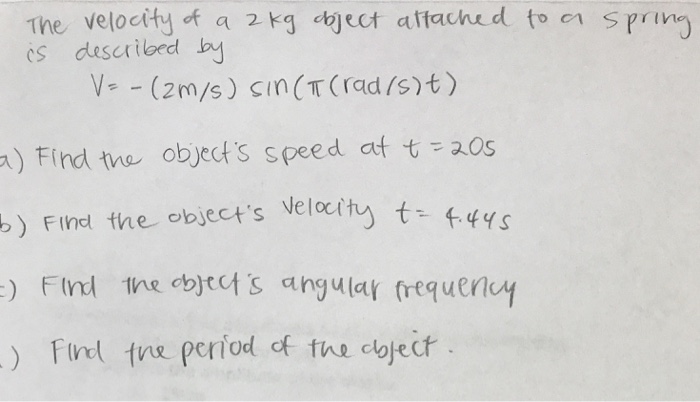 The velocity of a 2kg object attached to a spring
is described by
V= -(2m/s) sin(π(rad/s)t)
a) Find the object's speed at t=20s
b) Find the object's velocity t= 4.44s
c) Find the object's angular frequency
) Find the period of the object.